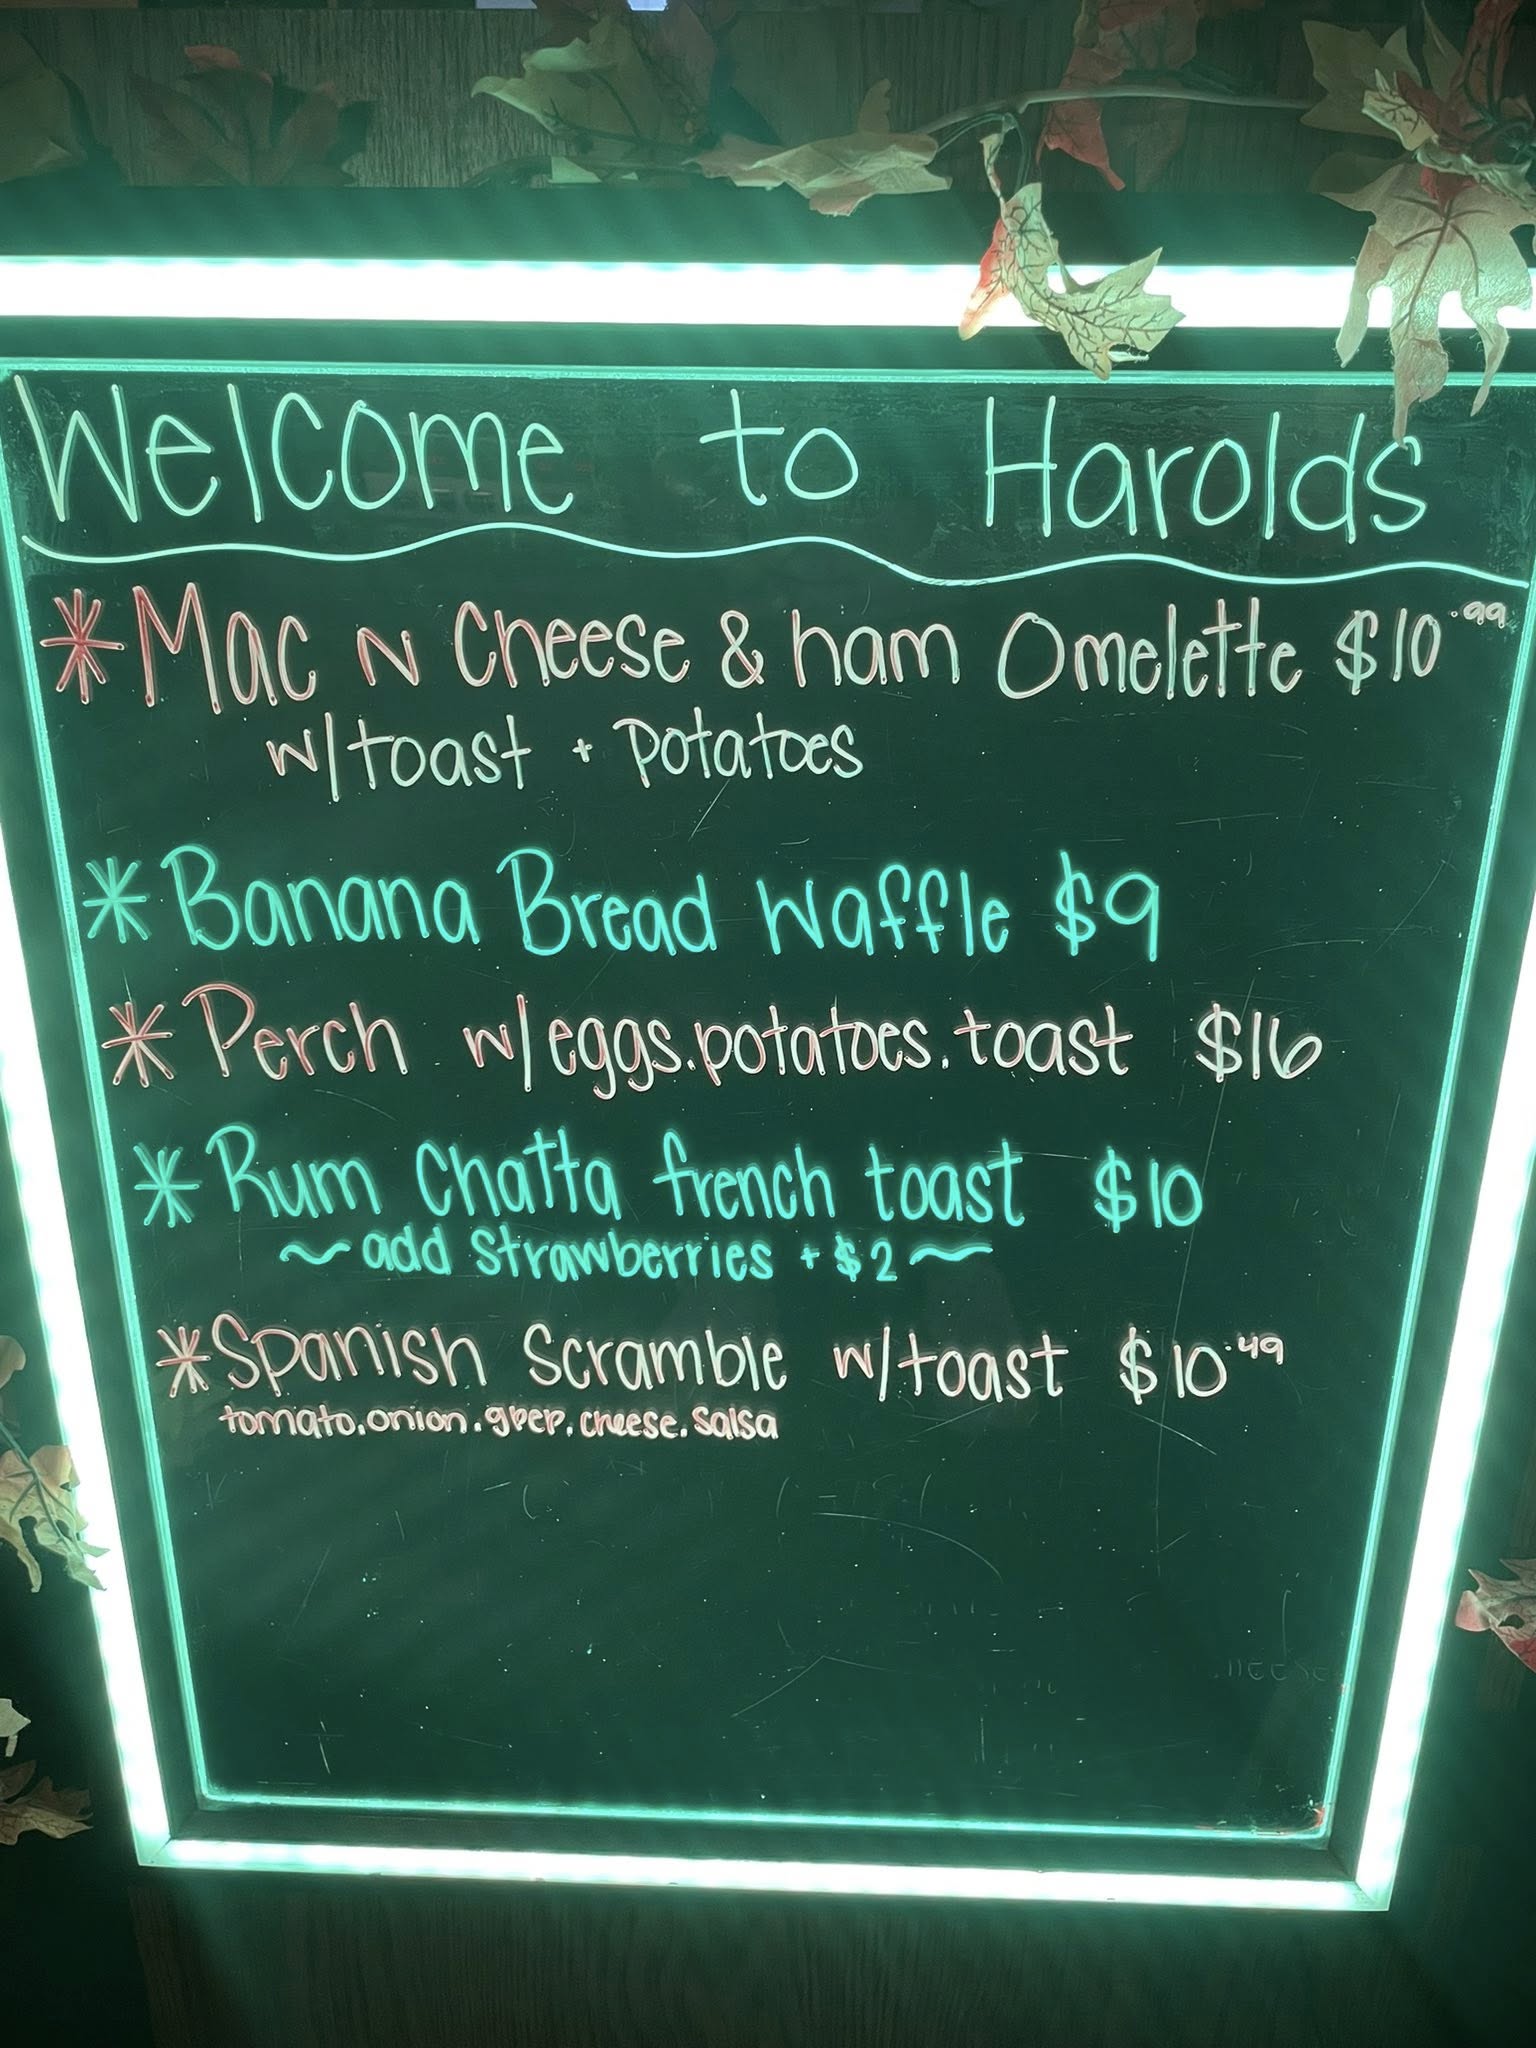 Welcome to Harolds
* Mac N Cheese & ham Omelette $10.99
w/toast + Potatoes
* Banana Bread Waffle $9
* Perch w/eggs.potatoes.toast $16
* Rum Chatta french toast $10
~ add Strawberries + $2 ~
* Spanish Scramble w/toast $10.49
tomato.onion.gpep.cheese.Salsa